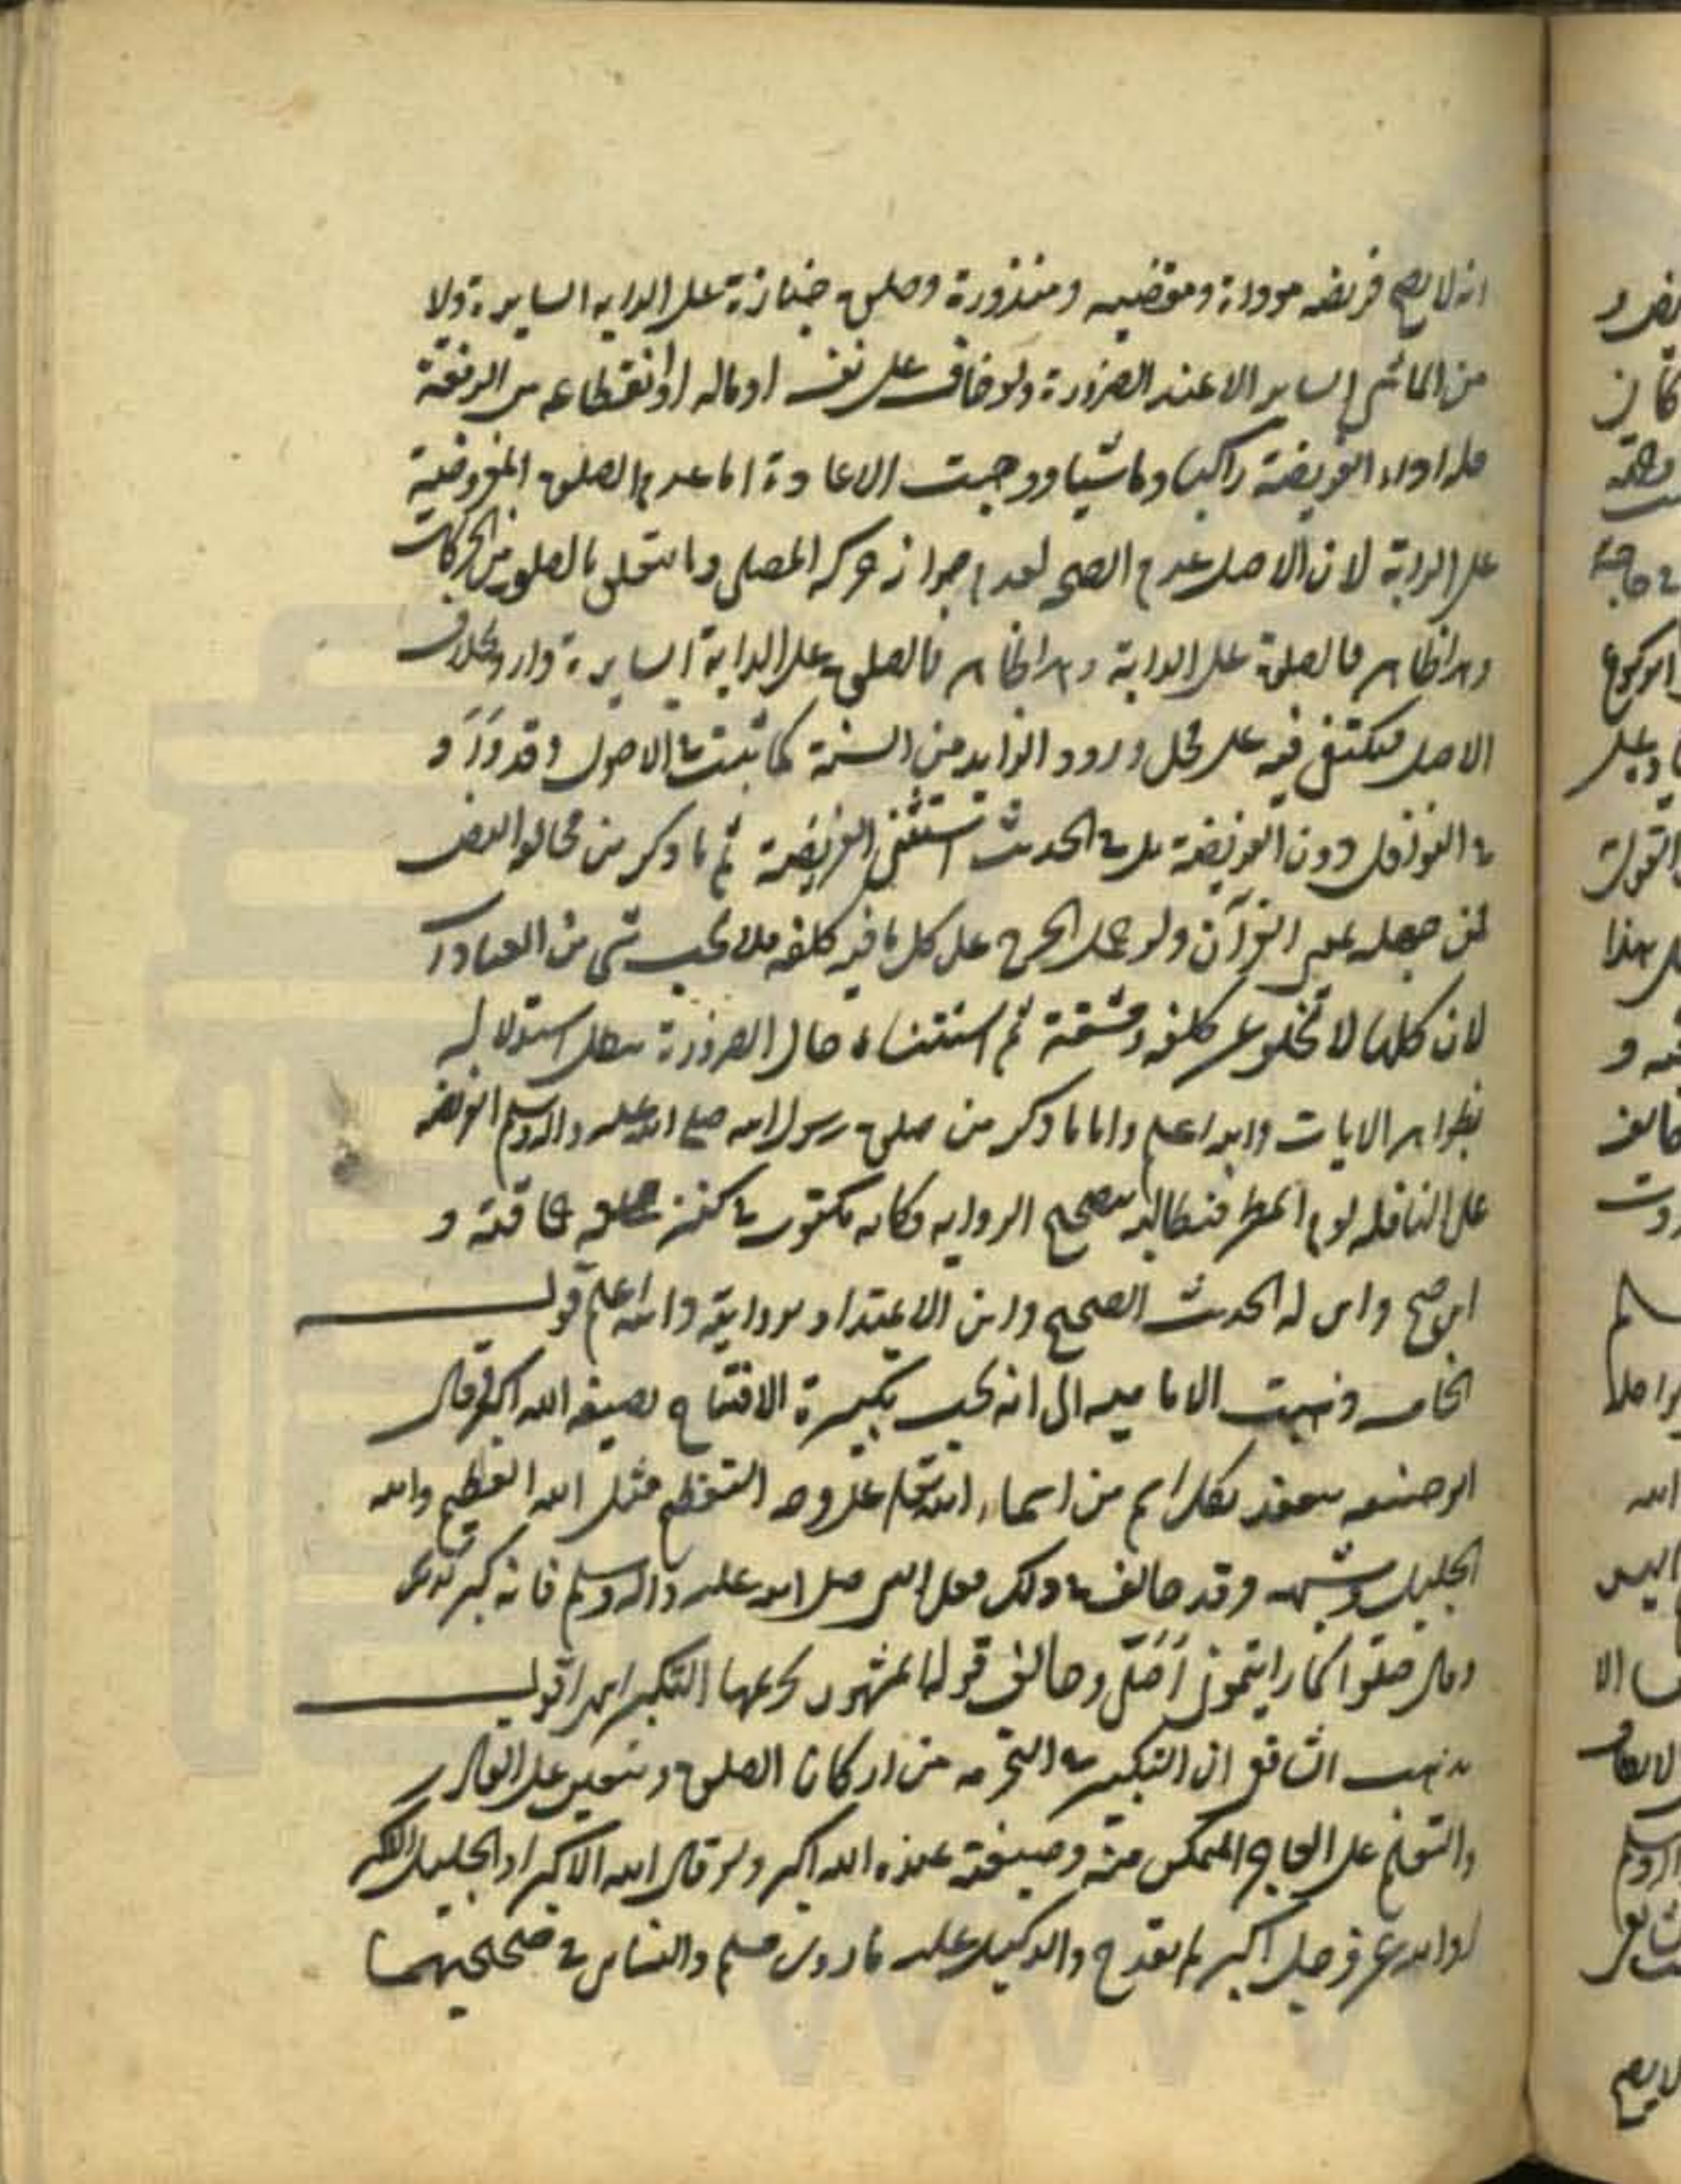 انه لا يصح فريضه موداة ومقضيه ومنذورة وصلوة جنازة على الدابه السايرة ولا
من الماشى الساير الا عند الضرورة ولو خاف على نفسه او ماله او انقطاعه من الرفقة
فله اداء الفريضة راكبا وماشيا ووجبت الاعادة اما عدم الصلوة المفروضة
على الدابة لان الاصل عدم الصحه لعدم جواز حركه المصلى وما يتعلق بالصلوة من الحركات
وهو الظاهر فالصلوة على الدابة وهو الظاهر فالصلوة على الدابة السايرة وارد بخلاف
الاصل فيكتفى فيه على محل ورود الزايد من السنة كما ثبت فى الاصول وقد ورد
فى النوافل دون الفريضة بل فى الحديث استثنى الفريضة ثم ما ذكر من مخالفه النص
لمن جهله بمعنى القرآن ولو حمل الحرج على كل ما فيه كلفه فلا يجب شى من العبادات
لان كلها لا تخلو عن كلفه ومشقة ثم استثناء حال الضرورة يبطل استدلاله
بظواهر الايات والله اعلم واما ما ذكر من صلوة رسول الله صلى الله عليه واله وسلم الفريضه
على النافله يوم المطر فنطالبه بتصحيح الروايه فكانه مكتوب فى كتف و
ابن صح واين له الحديث الصحيح واين الاعتداد بروايته والله اعلم قولـــه
الخامسه ذهبت الاماميه الى انه يجب تكبيرة الافتتاح بصيغه الله اكبر وقال
ابو حنيفه ينعقد بكل اسم من اسماء الله تعالى على وجه التعظيم مثل الله العظيم والله
الجليل وشبهه وقد خالف فى ذلك فعل النبى صلى الله عليه واله وسلم فانه كبر كذلك
وقال صلوا كما رايتمونى اصلى وخالف قوله المشهور تحريمها التكبير انتهى اقولـــ
مذهب الشافعى ان التكبير فى التحرمه من اركان الصلوة ويتعين على القادر
والتعلم على العاجز المتمكن منه وصيغته عنده الله اكبر ولو قال الله الاكبر او الجليل اكبر
او الله عز وجل اكبر لم يقدح والدليل عليه ما روى مسلم والنسائى فى صحيحيهما